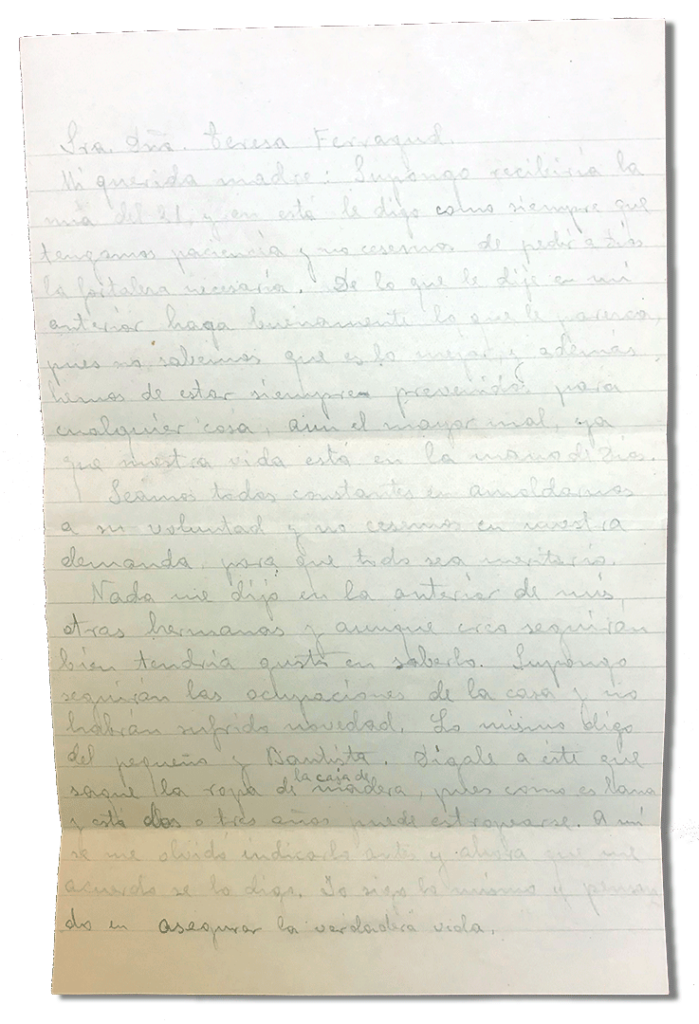 Sra. Dña. Teresa Ferragud.
Mi querida madre: Supongo recibiría la
mía del 21, y en está le digo como siempre que
tengamos paciencia y no cesemos de pedir a Dios
la fortaleza necesaria. De lo que le dije en mi
anterior haga buenamente lo que le parezca,
pues no sabemos que es lo mejor, y además,
hemos de estar siempre prevenidos para
cualquier cosa, aun el mayor mal, ya
que nuestra vida está en la mano de Dios.
Seamos todos constantes en amoldarnos
a su voluntad y no cesemos en nuestra
demanda, para que todo sea meritorio.
Nada me dijo en la anterior de mis
otras hermanas y aunque creo seguirán
bien tendría gusto en saberlo. Supongo
seguirán las ocupaciones de la casa y no
habrán sufrido novedad. Lo mismo digo
del pequeño y Bautista. Dígale a éste que
saque la ropa de la caja de madera, pues como es lana
y está dos o tres años puede estropearse. A mi
se me olvidó indicarlo antes y ahora que me
acuerdo se lo digo. Yo sigo lo mismo y pensan
do en asegurar la verdadera vida.